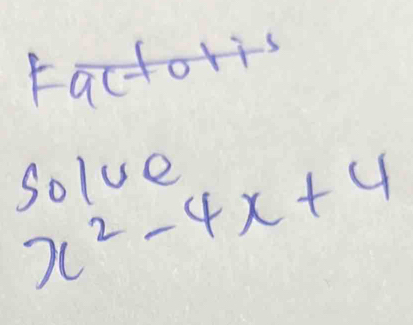 Factoris
Solve
x² - 4x + 4